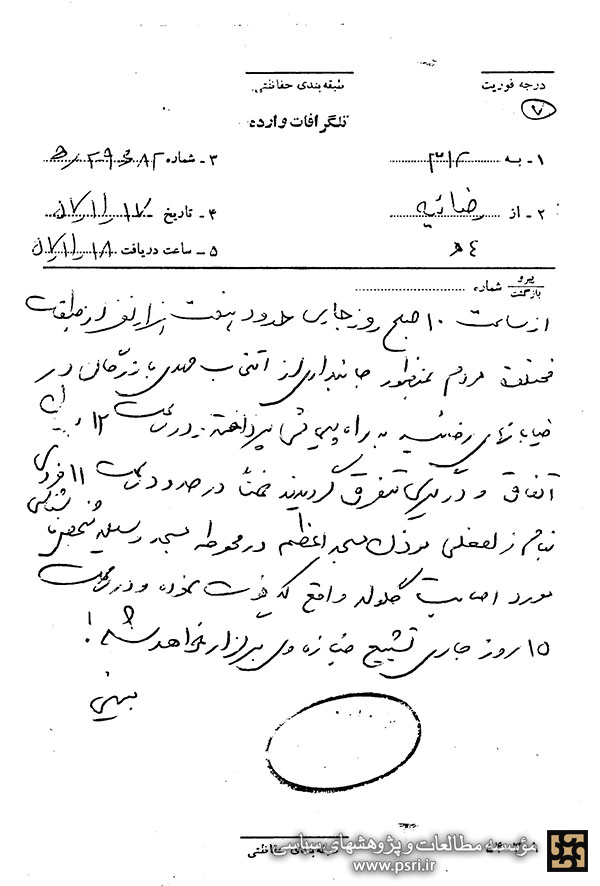 درجه فوریت
طبقه‌بندی حفاظتی
۷
تلگرافات وارده
۱ - به ۳۱۲
۳ - شماره
۲ - از رضائیه
۴ - تاریخ ۵۷/۱۱/۱۷
۴ ه‍
۵ - ساعت دریافت ۵۷/۱۱/۱۸
پیرو
بازگشت شماره
از ساعت ۱۰ صبح روز جاری حدود هفت هزار نفر از طبقات
مختلف مردم بمنظور جانبداری از انتخاب مهدی بازرگان در
خیابانهای رضائیه به راه پیمائی پرداخته و در ساعت ۱۲ بدون
اتفاق و درگیری متفرق گردیدند ضمناً در حدود ساعت ۱۱ فردی
بنام زلفعلی موذن مسجد اعظم در محوطه مسجد وسیله شخص ناشناسی
مورد اصابت گلوله واقع که فوت نموده و در ساعت
۱۵ روز جاری تشییع جنازه وی برگزار خواهد شد!
طبقه‌بندی حفاظتی
مؤسسه مطالعات و پژوهشهای سیاسی
www.psri.ir